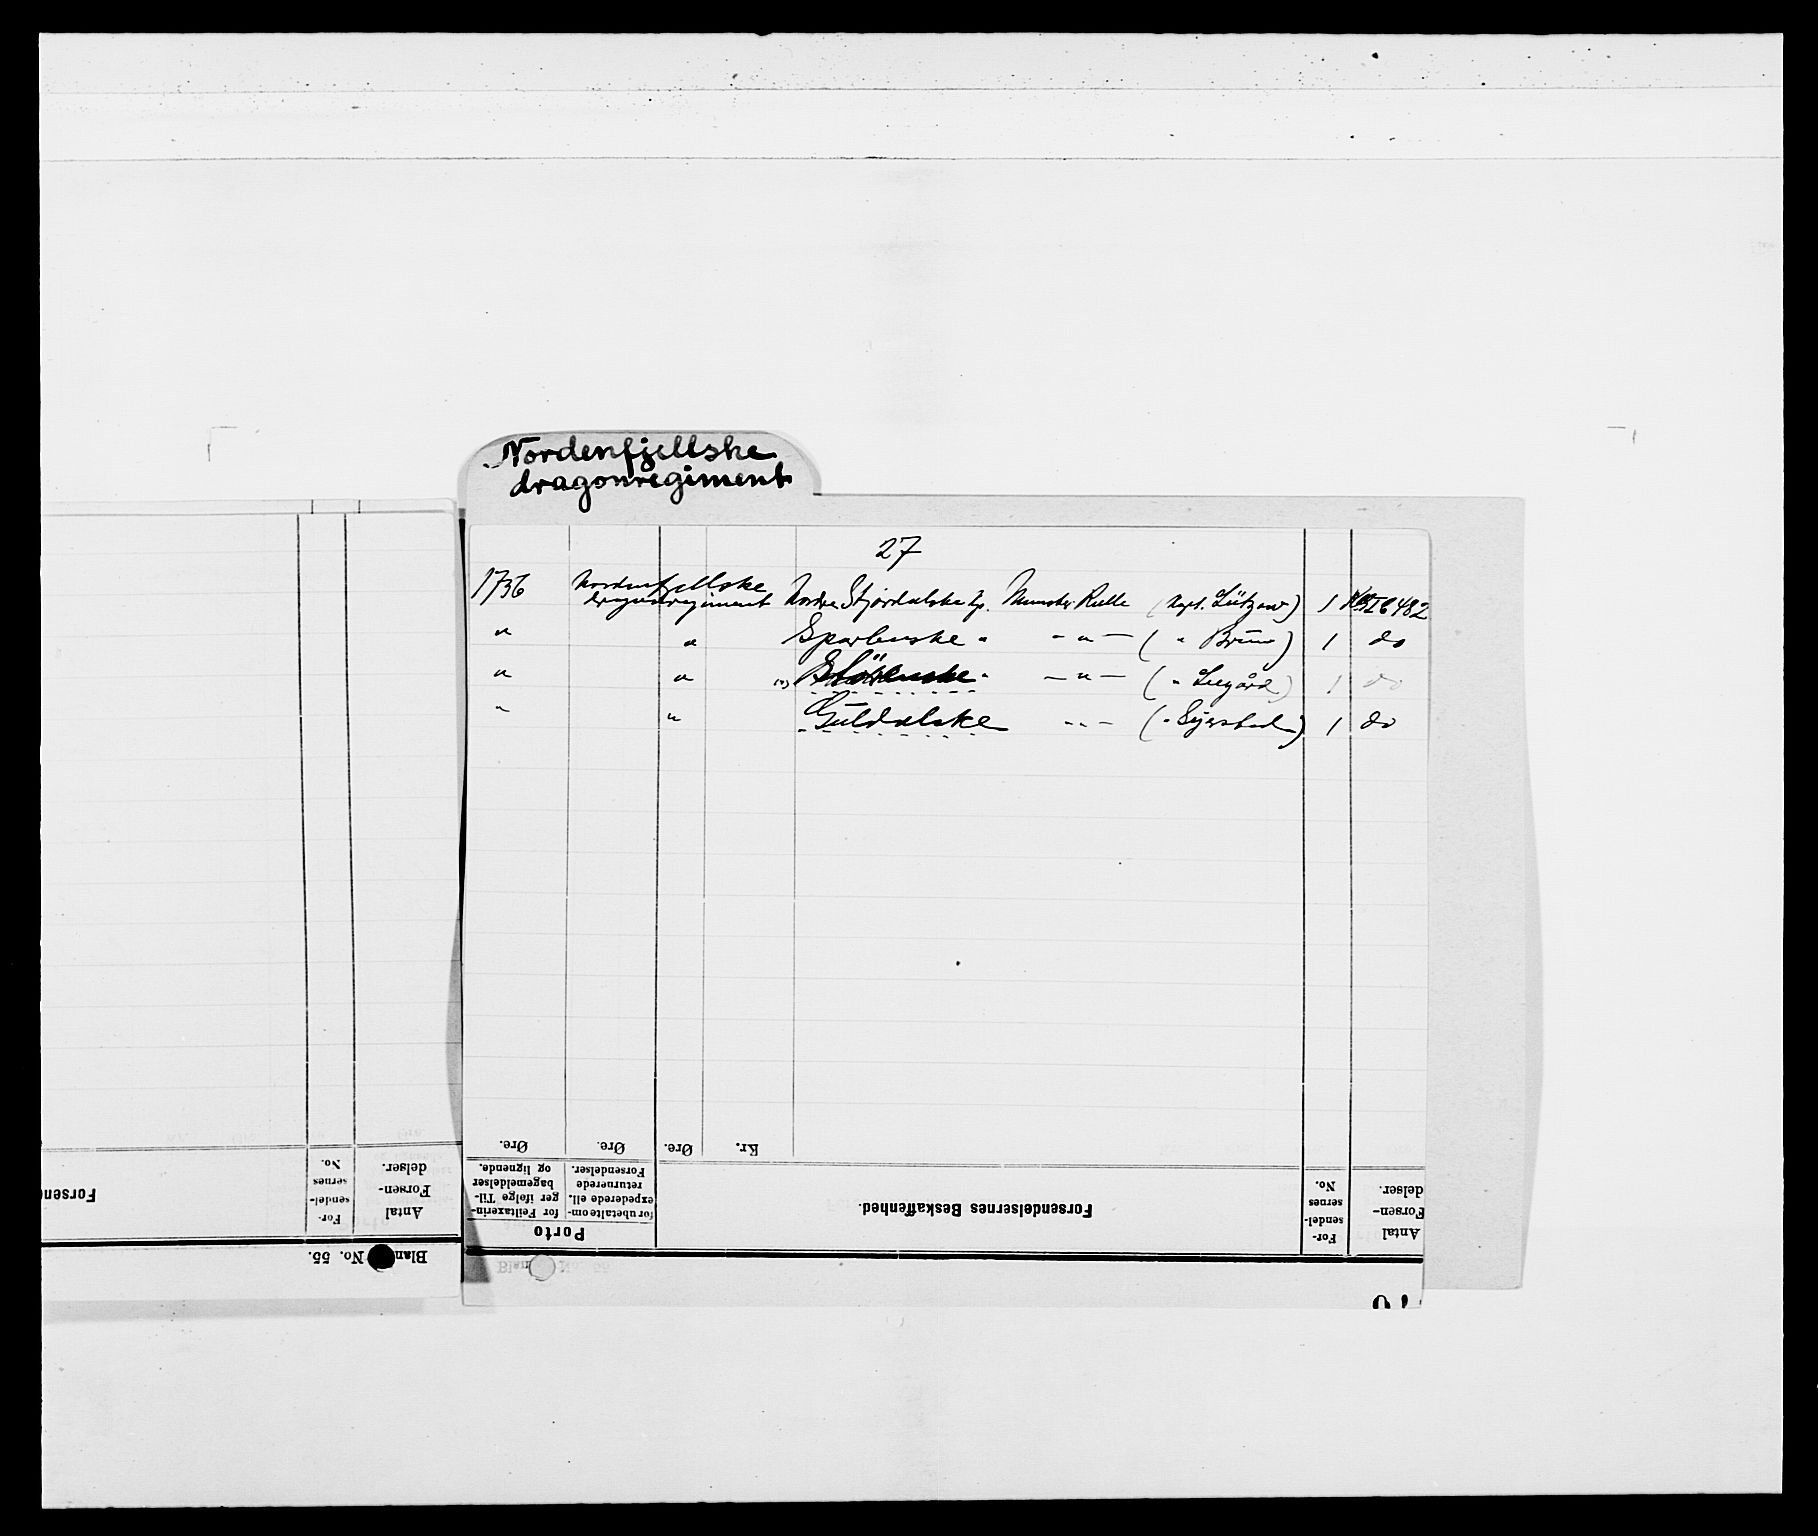 Nordenfjellske
dragonregiment
27
1736 Nordenfjellske
dragonregiment Nordre Stjördalske kp. Munster-Rulle (Kapt. Lützow) 1 482
" " Sparbuske " - " - ( " Brun) 1 do
" " " - " - ( " Leegård) 1 do
" " Guldalske - " - ( " ) 1 do
Øre. Øre. Øre. Kr.
Porto
for Feiltaxerin-
ger ifølge Til-
bagemeldelser
og lignende.
for ubetalte om-
expederede ell.
returnerede
Forsendelser.
Forsendelsernes Beskaffenhed.
For-
sendel-
sernes
No.
Antal
Forsen-
delser.
Blan No. 55.
Forsend
For-
sendel-
sernes
No.
Antal
Forsen-
delser.
Blan No. 55.